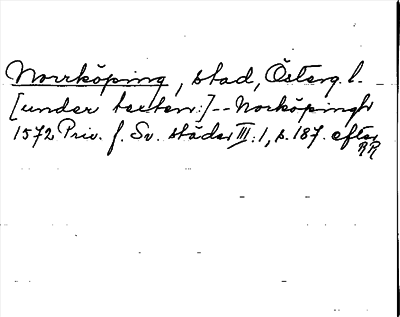 Norrköping, stad, Österg. l.
[under texten:]--Norköpingh
1572 Priv. f. Sv. städer III:1, s. 187. efter
RR